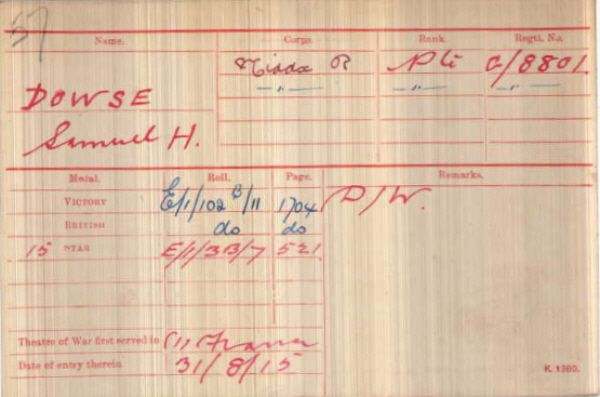 57
Name. Corps. Rank. Regtl. No.
Midd'x R Pte G/8801
–"– –"– –"–
DOWSE
Samuel H.
Medal. Roll. Page. Remarks.
VICTORY E/1/102 B/11 1704 D/W.
BRITISH do do
15 STAR E/1/3B/7 521.
Theatre of War first served in (1) France
Date of entry therein 31/8/15
K. 1380.